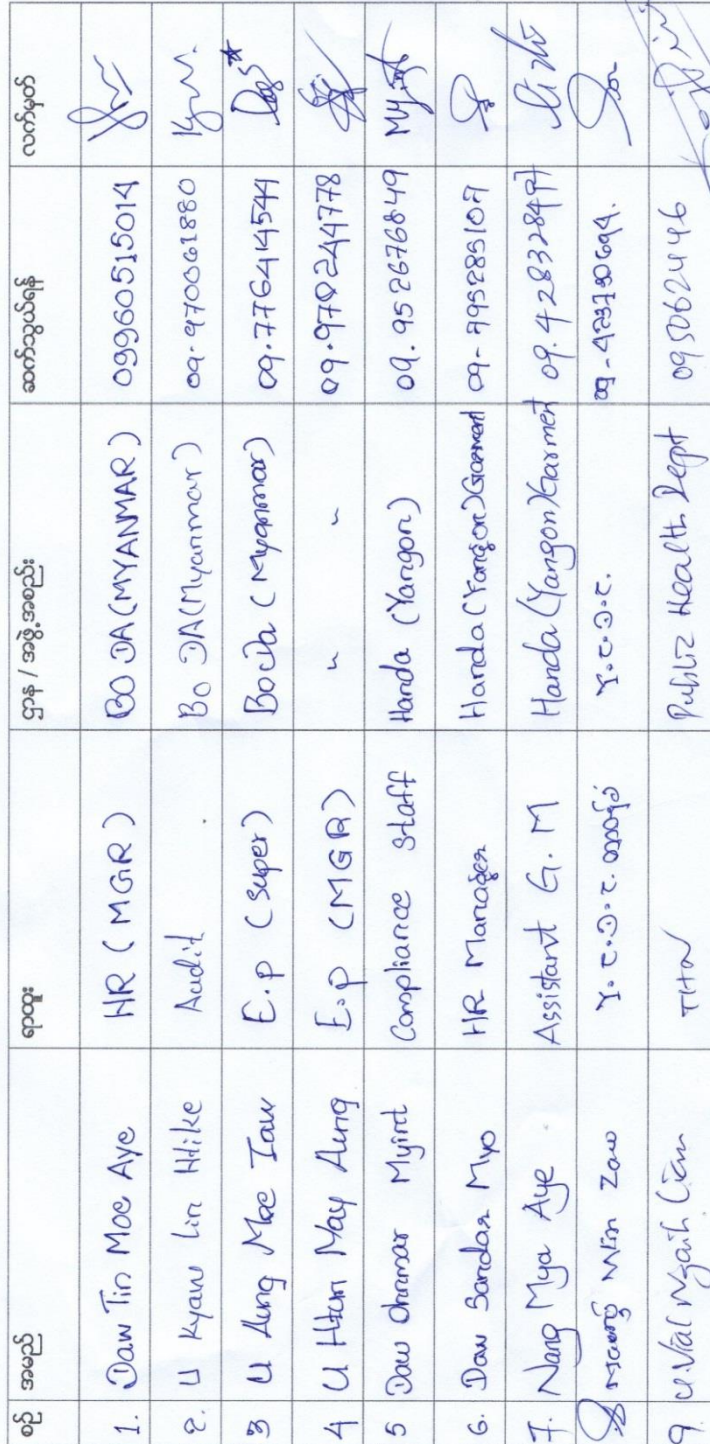 စဉ် အမည် ရာထူး ဌာန / အဖွဲ့အစည်း ဆက်သွယ်ရန် လက်မှတ်
1. Daw Tin Moe Aye HR (MGR) BO DA (MYANMAR) 09960515014
2. U Kyaw Lin Htike Audit BO DA (Myanmar) 09.970061880
3 U Aung Moe Taw E.P (Super) Bo Da (Myanmar) 09.776414544
4 U Htun May Aung E.P (MGR) " " 09.970244778
5 Daw Ohnmar Myint Compliance staff Handa (Yangon) 09.952676849
6. Daw Sandar Myo HR Manager Handa (Yangon) Garment 09-795285107
7. Nang Mya Aye Assistant G.M Handa (Yangon) Garment
Min Zaw
9. Public Health Dept 095062446